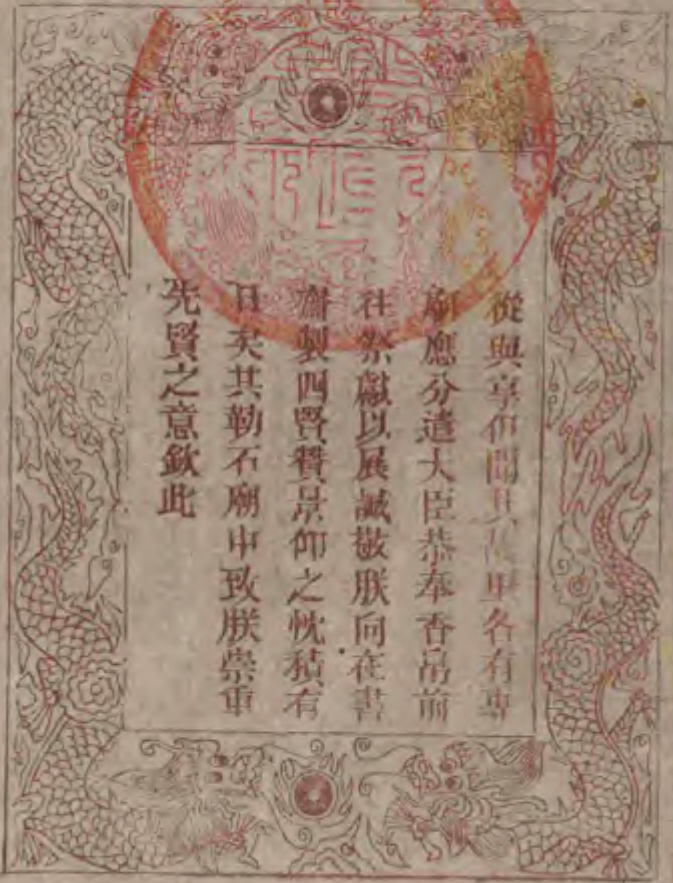 從與享但聞其故里各有專
廟應分遣大臣恭奉香帛前
往祭獻以展誠敬朕向在書
齋製四賢贊景仰之忱積有
日矣其勒石廟中致朕崇重
先賢之意欽此